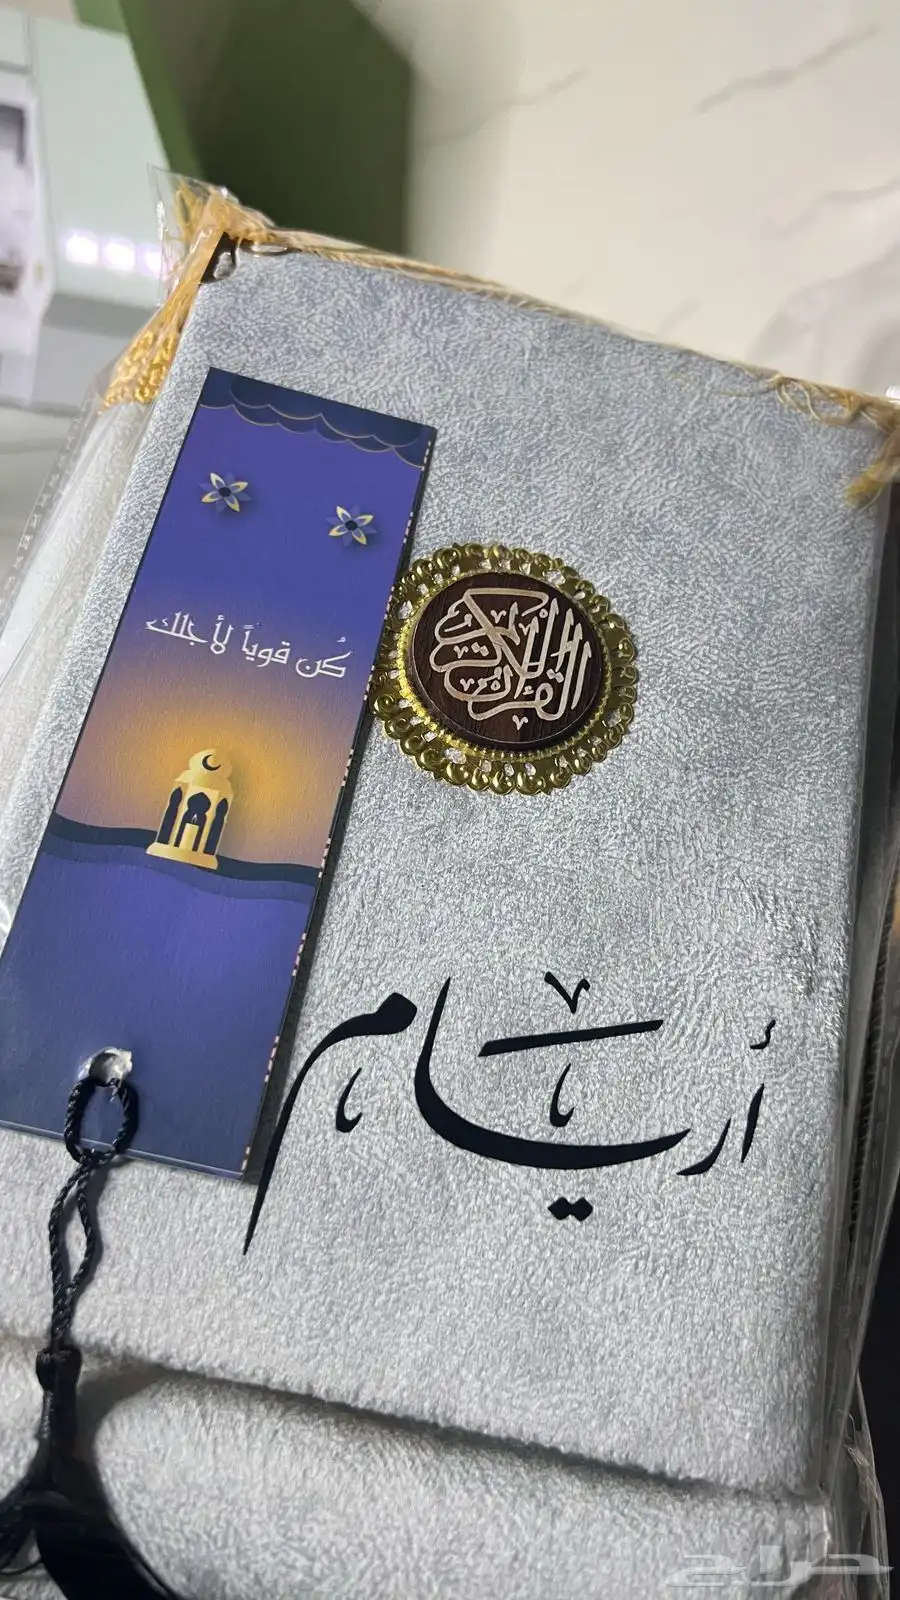 كُن قوياً لأجلك
القرآن الكريم
أريام
حراج